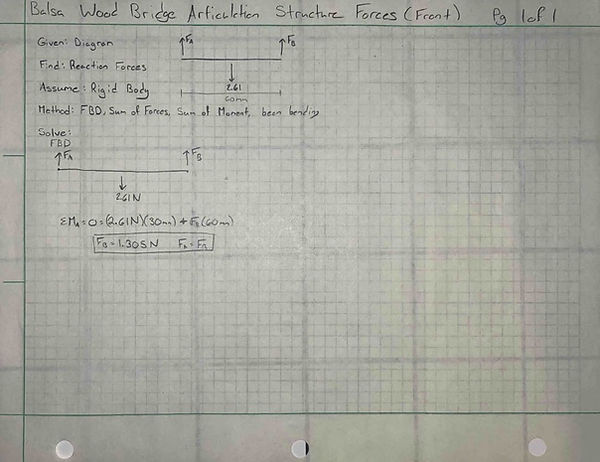 Balsa Wood Bridge Articulation Structure Forces (Front) Pg 1 of 1
Given: Diagram
↑FA ↑FB
Find: Reaction Forces
2.61
Assume: Rigid Body
60mm
Method: FBD, Sum of Forces, Sum of Moment, beam bending
Solve:
FBD
↑FA ↑FB
2.61N
ΣMA=0=(2.61N)(30mm)+FB(60mm)
FB=1.305N FA=FB